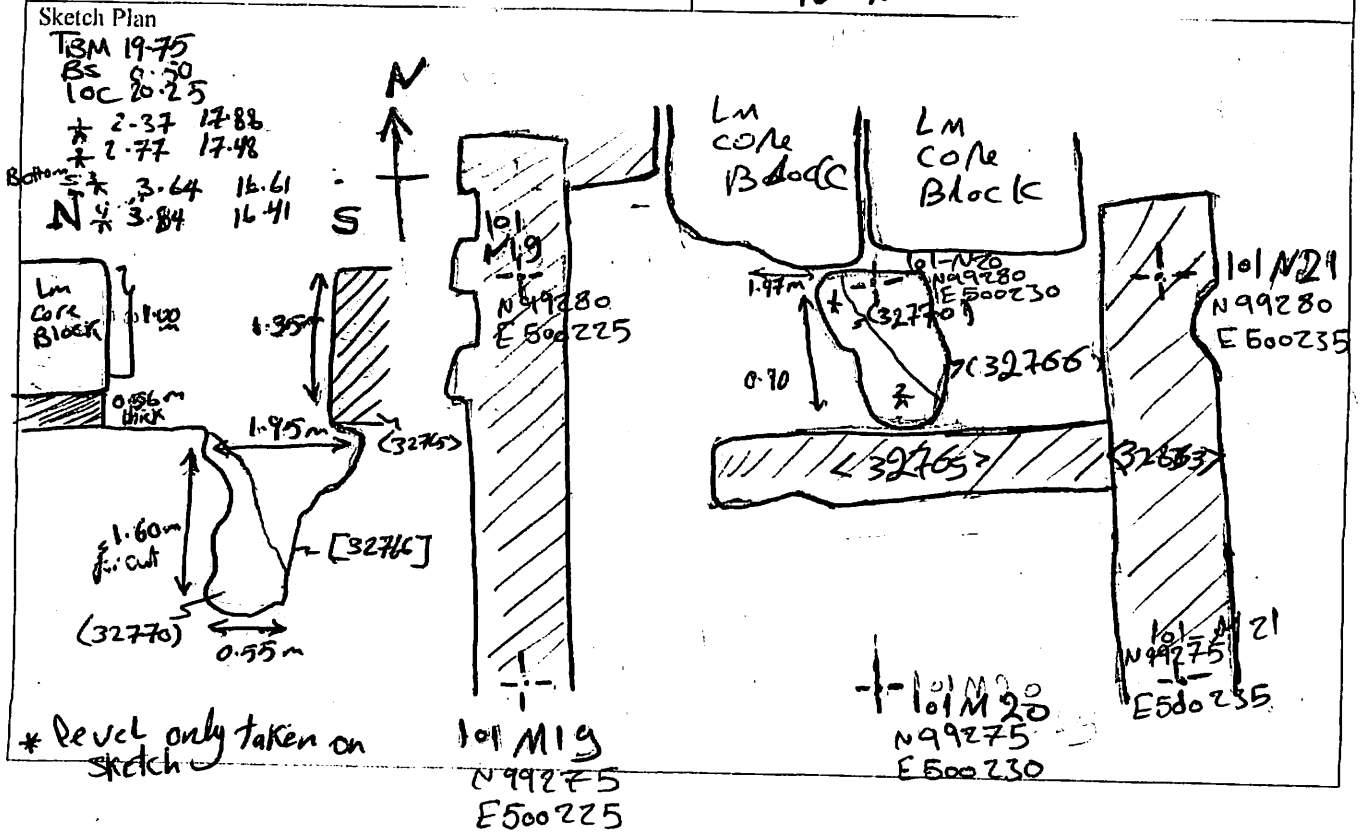 Sketch Plan
TBM 19.75
BS 0.50
IOC 20.25
1 2.37 17.88
2 2.77 17.48
Bottom 3 3.64 16.61
4 3.84 16.41
N
S
N
Lm
Core
Block
1.00
m
0.56m
thick
1.35m
1.95m
<32765>
1.60m
[32766]
(32770)
0.55m
* Level only taken on
sketch
101
N19
N 99280
E 500225
101 M19
N 99275
E500225
Lm
core
Block
Lm
core
Block
1.97m
101-N20
N99280
E500230
(32770)
0.90
(32766)
<32765>
101 N21
N 99280
E500235
101 M20
N99275
E500230
N99275
E500235